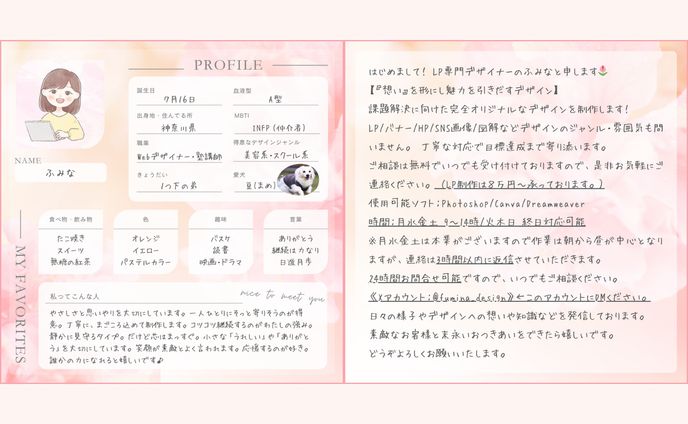 PROFILE
NAME
ふみな
誕生日
7月16日
血液型
A型
出身地・住んでる所
神奈川県
MBTI
INFP(仲介者)
職業
Webデザイナー・塾講師
得意なデザインジャンル
美容系・スクール系
きょうだい
1つ下の弟
愛犬
豆(まめ)
MY FAVORITES
食べ物・飲み物
たこ焼き
スイーツ
無糖の紅茶
色
オレンジ
イエロー
パステルカラー
趣味
バスケ
読書
映画・ドラマ
言葉
ありがとう
継続は力なり
日進月歩
私ってこんな人
nice to meet you
やさしさと思いやりを大切にしています。一人ひとりにそっと寄りそうのが得
意。丁寧に、まごころ込めて制作します。コツコツ継続するのがわたしの強み。
静かに見守るタイプ。だけど応はまっすぐ。小さな「うれしい」や「ありがと
う」を大切にしています。笑顔が素敵とよく言われます。応援するのが好き。
誰かの力になれると嬉しいです♪
はじめまして! LP専門デザイナーのふみなと申します🌷
【『想い』を形にし魅力を引きだすデザイン】
課題解決に向けた完全オリジナルなデザインを制作します!
LP/バナー/HP/SNS画像/図解などデザインのジャンル・雰囲気も問
いません。 丁寧な対応で目標達成まで寄り添います。
ご相談は無料でいつでも受け付けておりますので、是非お気軽にご
連絡ください。(LP制作は8万円〜承っております。)
使用可能ソフト:Photoshop/Canva/Dreamweaver
時間:月水金土 9〜14時/火木日 終日対応可能
※月水金土は本業がございますので作業は朝から昼が中心となり
ますが、連絡は3時間以内に返信させていただきます。
24時間お問合せ可能ですので、いつでもご相談ください。
《Xアカウント:@fumina_design》←このアカウントにDMください。
日々の様子やデザインへの想いや知識などを発信しております。
素敵なお客様と末永いおつきあいをできたら嬉しいです。
どうぞよろしくお願いいたします。